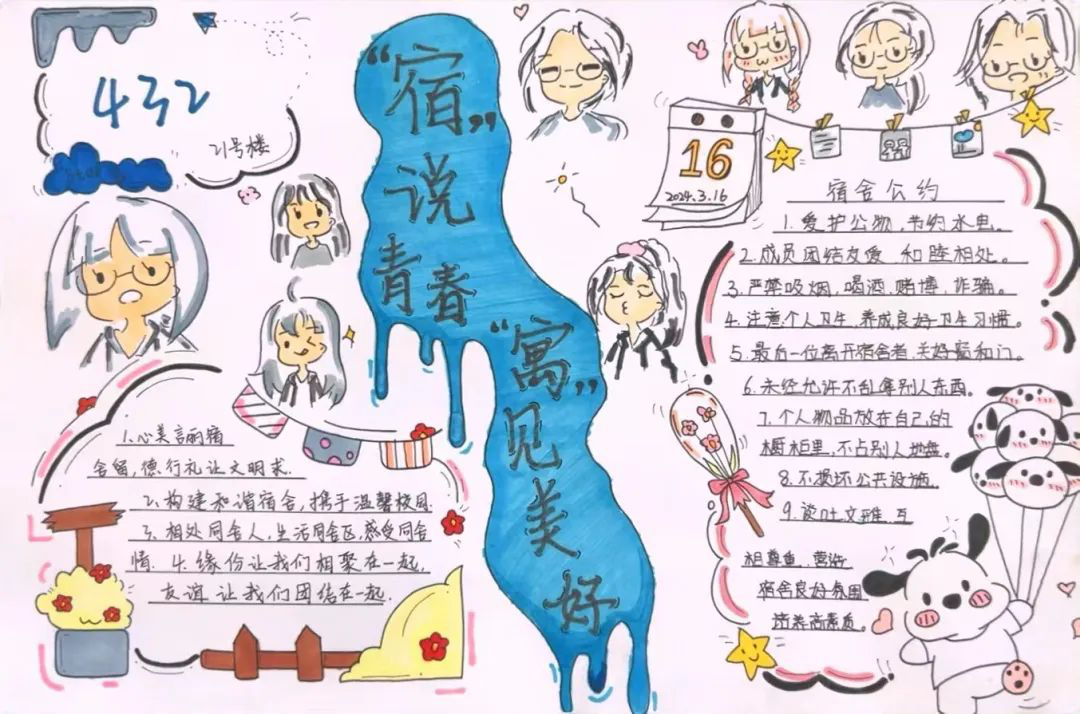 432
21号楼
“宿”
说
青春
“寓”
见
美
好
16
2024.3.16
1.心美言丽宿
舍留,德行礼让文明求.
2.构建和谐宿舍,携手温馨校园.
3.相处同舍人,生活同舍区,感受同舍
情. 4.缘份让我们相聚在一起,
友谊让我们团结在一起.
宿舍公约
1.爱护公物,节约水电。
2.成员团结友爱 和睦相处。
3.严禁吸烟,喝酒,赌博,诈骗。
4.注意个人卫生,养成良好卫生习惯。
5.最后一位离开宿舍者,关好窗和门。
6.未经允许不乱拿别人东西。
7.个人物品放在自己的
橱柜里,不占别人地盘。
8.不损坏公共设施
9.谈吐文雅,互
相尊重,营造
宿舍良好氛围
培养高素质。